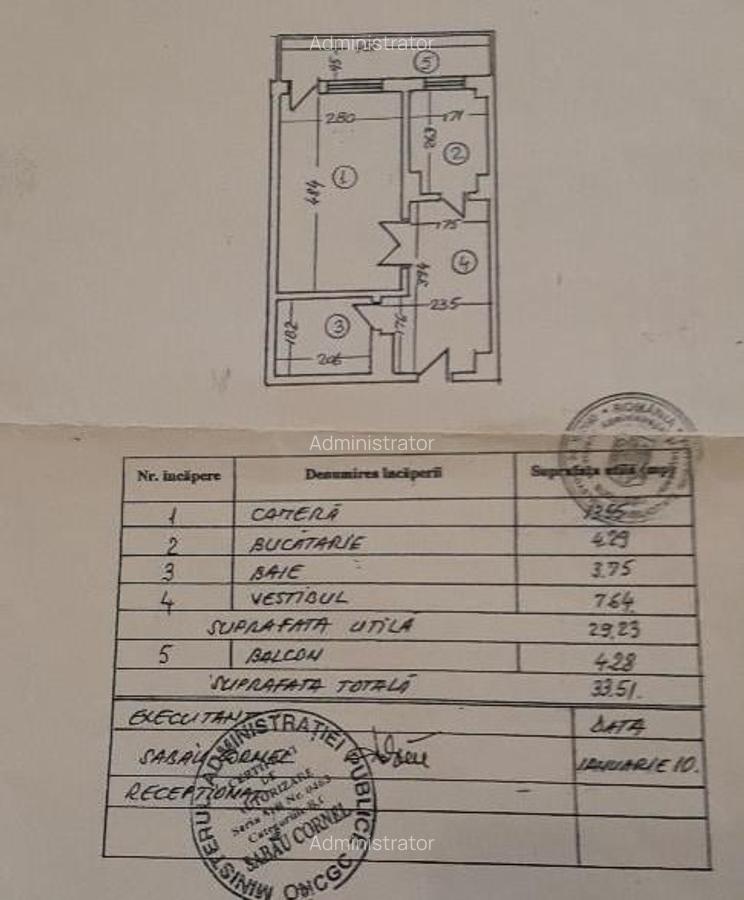 Administrator
95
5
280
171
263
2
1
484
175
4
344
235
3
182
206
Administrator
ROMÂNIA
Nr. încăpere Denumirea încăperii Suprafața utilă (mp)
1 CAMERĂ 13.55
2 BUCĂTARIE 4.29
3 BAIE 3.75
4 VESTIBUL 7.64
SUPRAFATA UTILĂ 29,23
5 BALCON 4.28
SUPRAFATA TOTALĂ 33.51.
EXECUTANT DATA
SARĂU CORNEL IANUARIE 10.
RECEPTIONAT
MINISTERUL ADMINISTRAȚIEI PUBLICE
CERTIFICAT
DE
AUTORIZARE
Seria
Nr. 0463
Categoria B,C
SARĂU CORNEL
ONCGC
Administrator